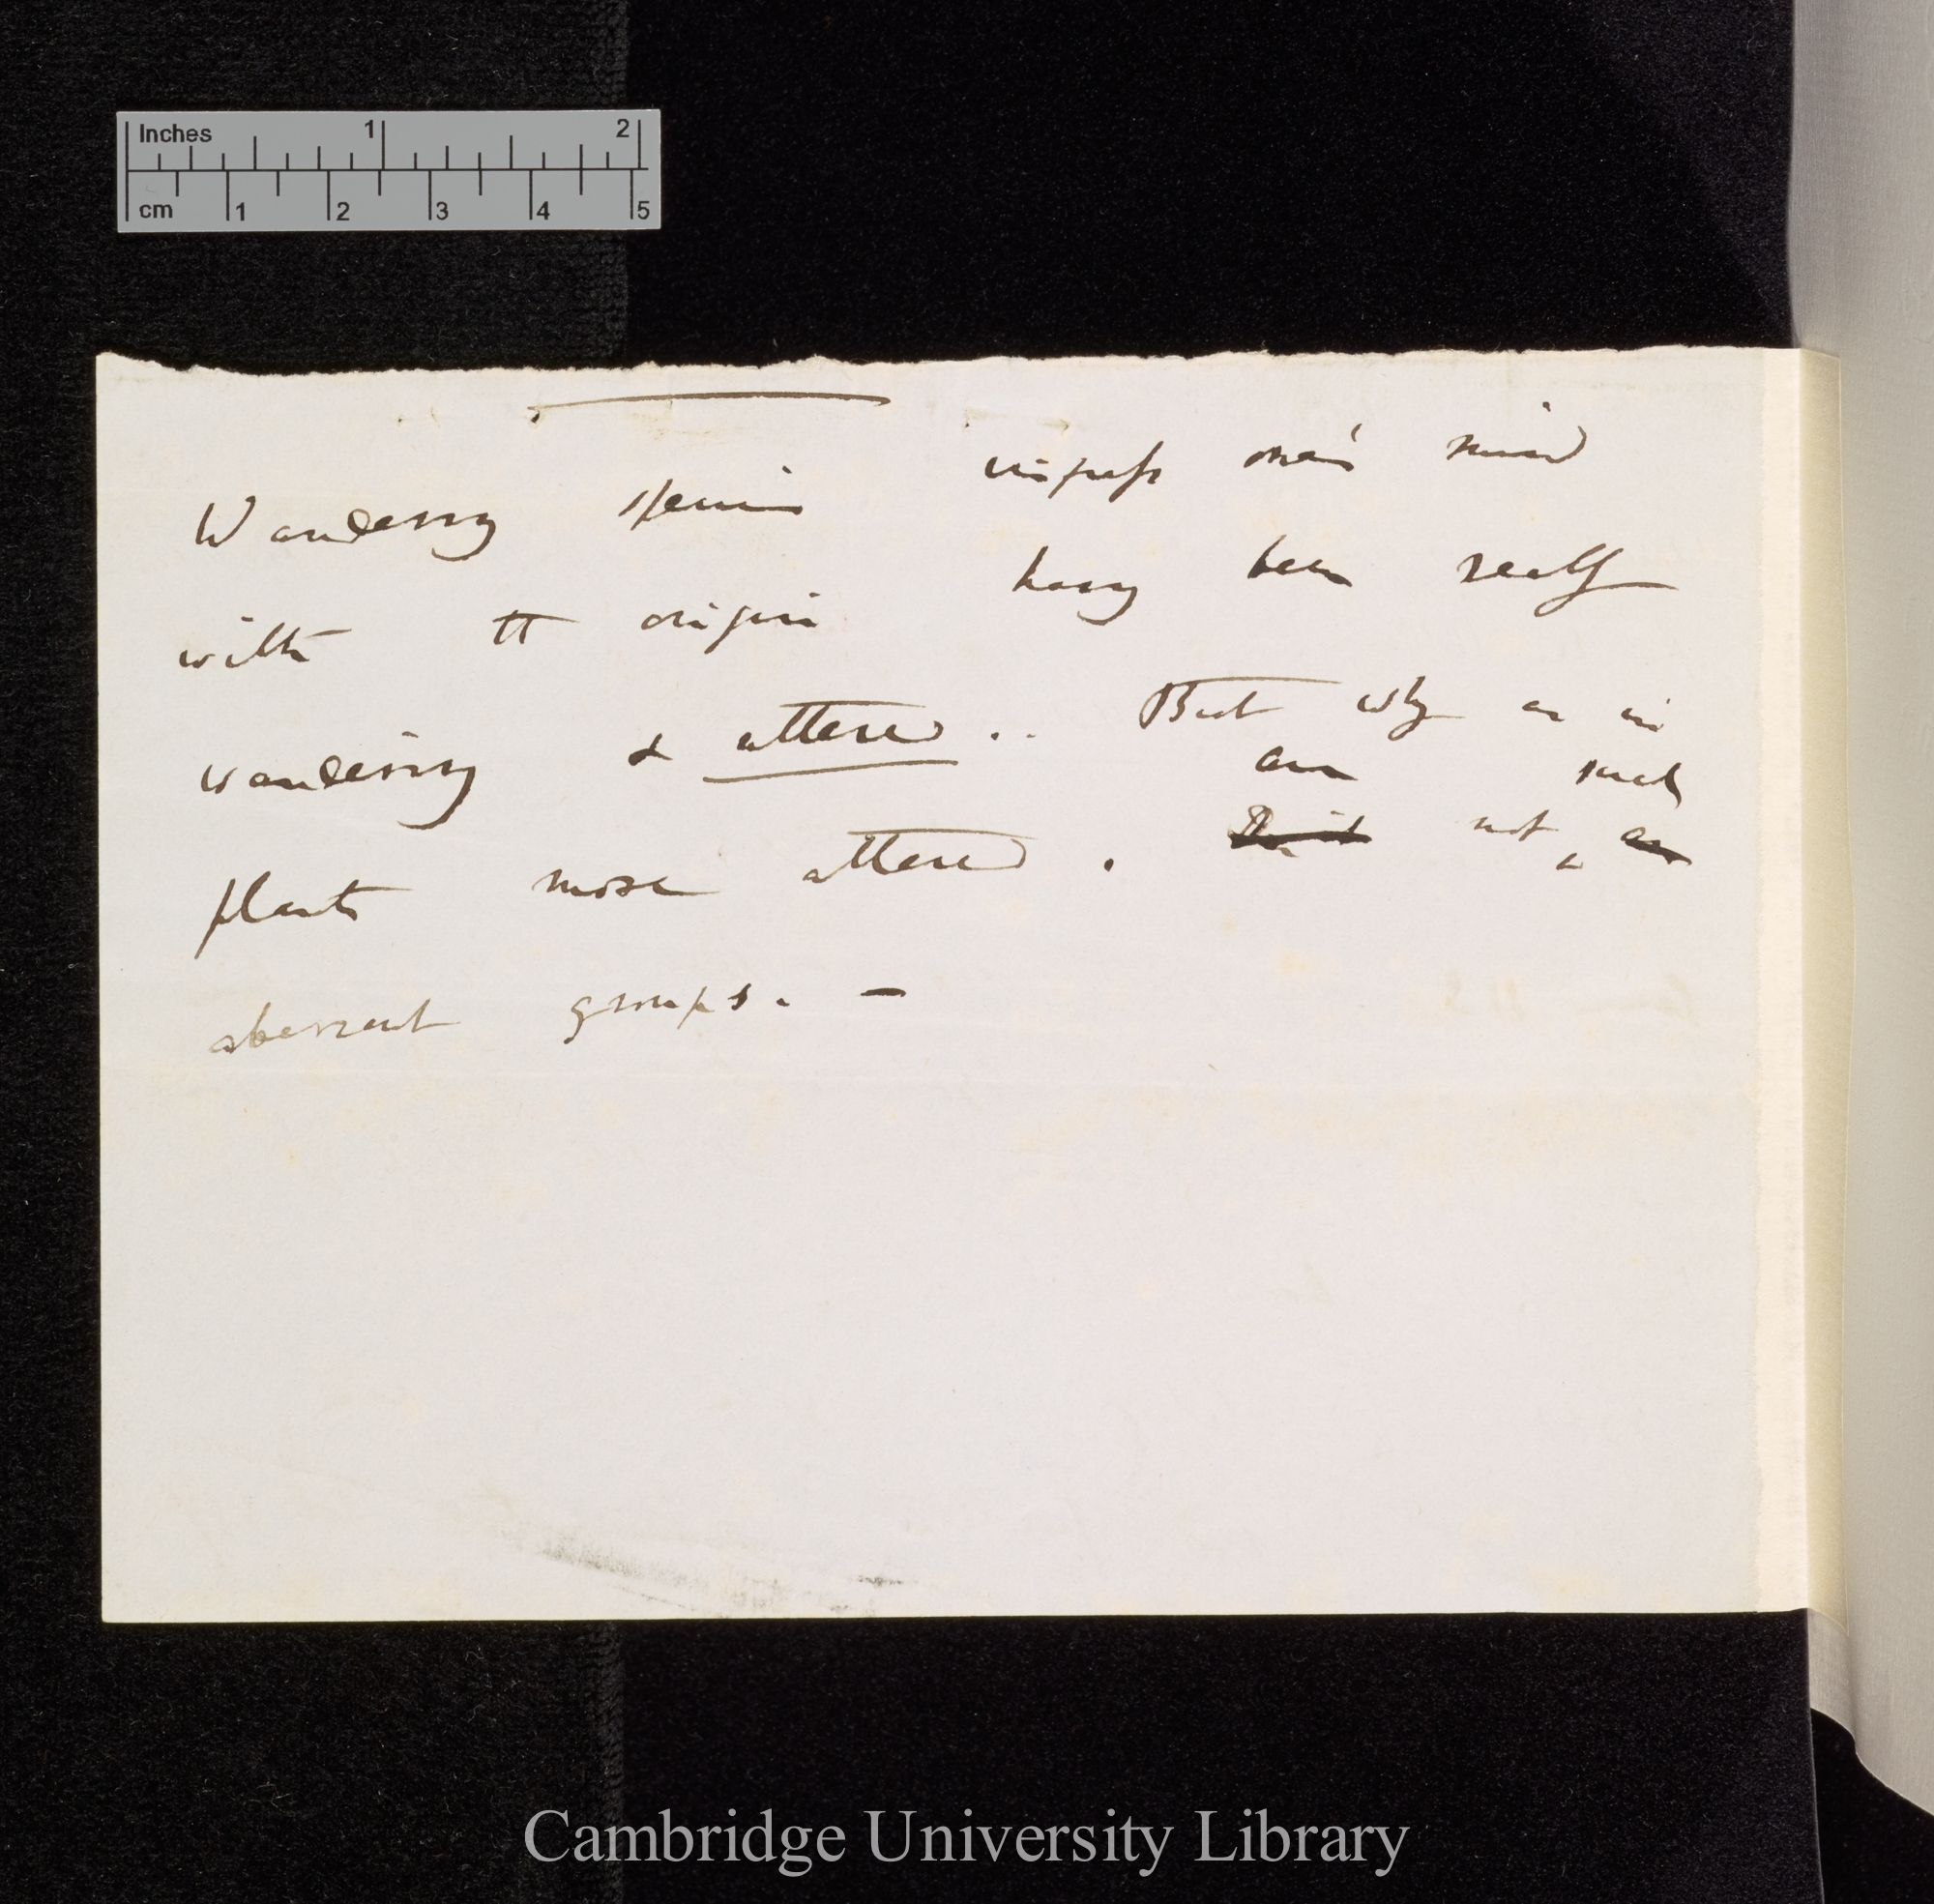 Inches 1 2
cm 1 2 3 4 5
Wandering species impress one's mind
with tt origin having been really
wandering & altered.. But why are in
are such
plants more altered. not a
aberrant groups. —
Cambridge University Library